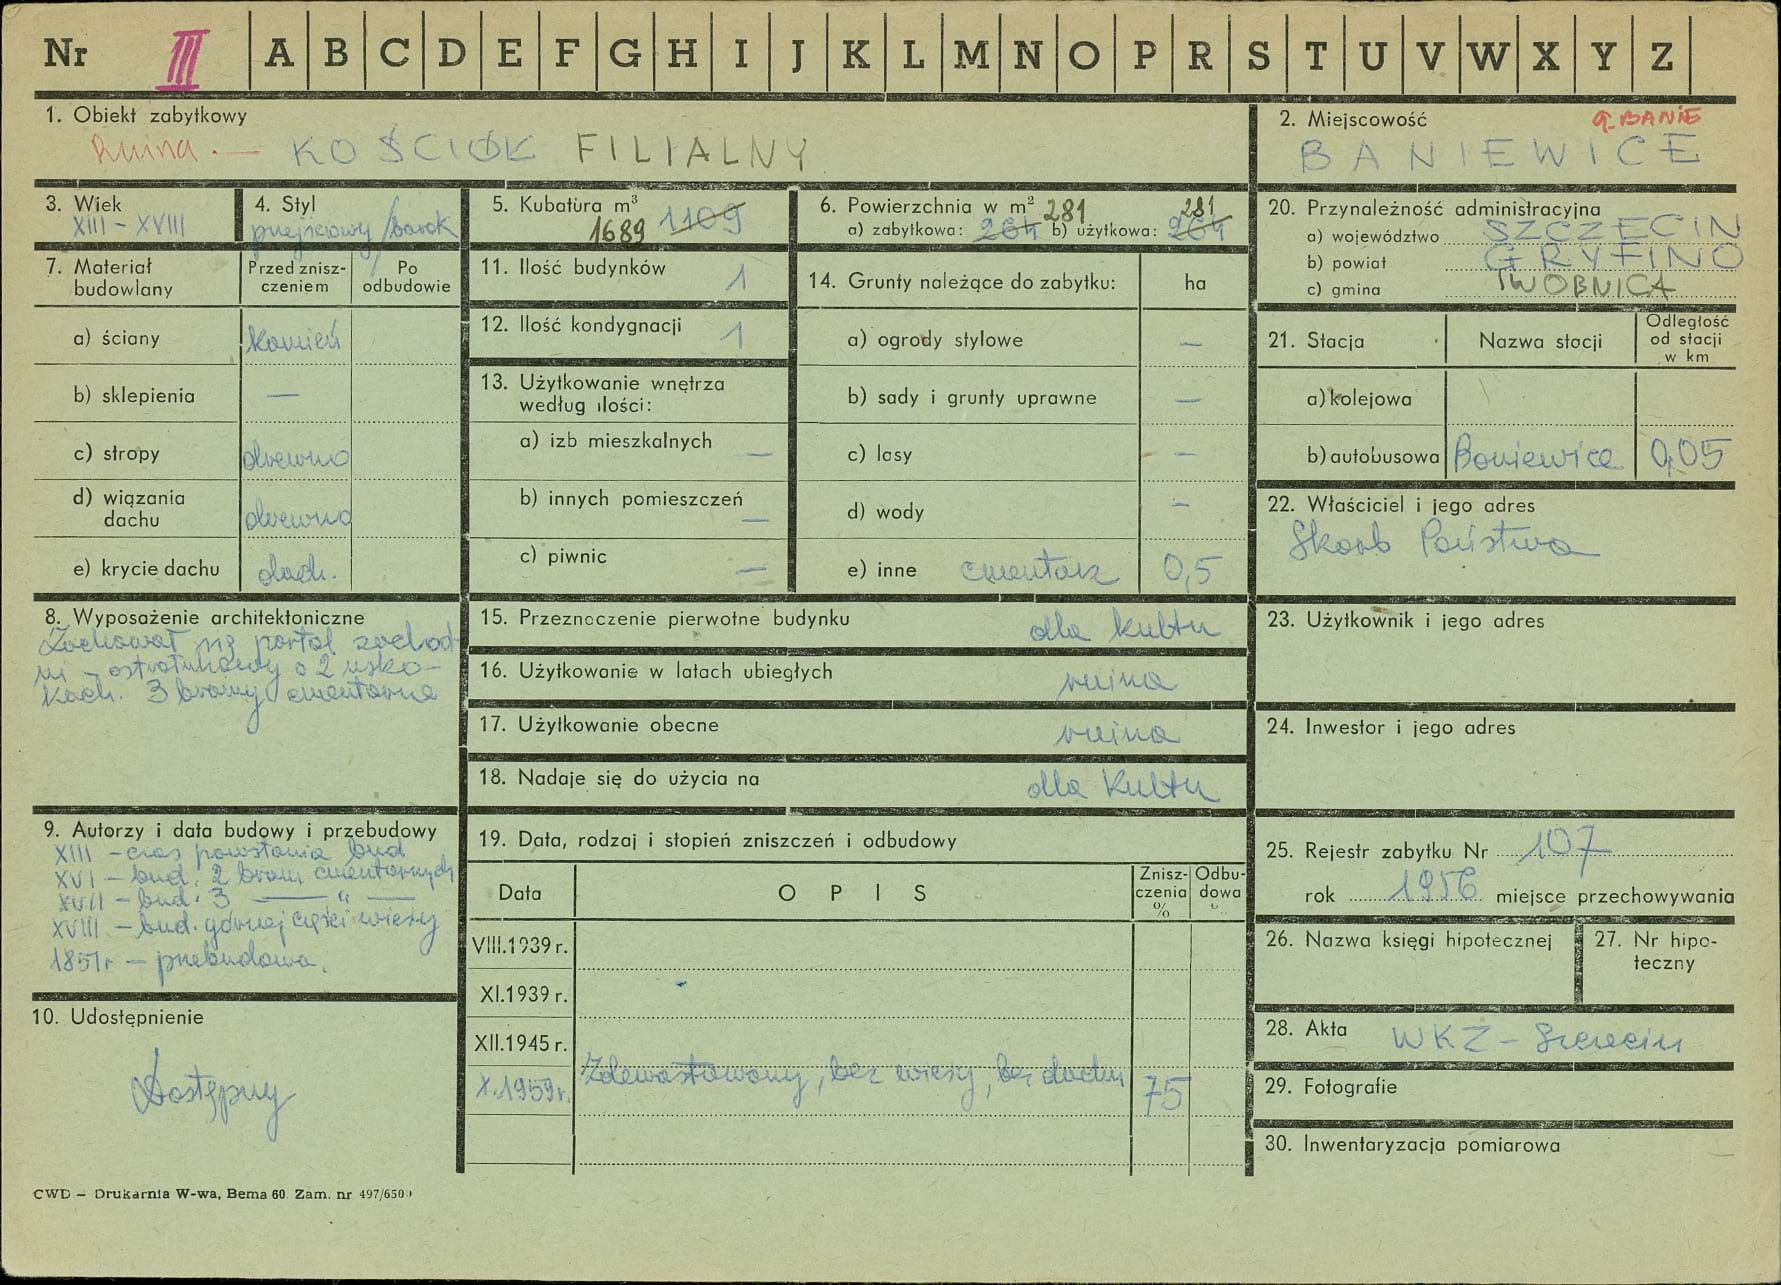 Nr III A B C D E F G H I J K L M N O P R S T U V W X Y Z
1. Obiekt zabytkowy
Ruina. — KOŚCIÓŁ FILIALNY
2. Miejscowość
g. BANIE
BANIEWICE
3. Wiek
XIII – XVIII
4. Styl
przejściowy / barok
5. Kubatura m³
1689 1109
6. Powierzchnia w m² 281 281
a) zabytkowa: 264 b) użytkowa: 264
20. Przynależność administracyjna
a) województwo SZCZECIN
b) powiat GRYFINO
c) gmina SWOBNICA
7. Materiał budowlany
Przed zniszczeniem
Po odbudowie
a) ściany kamień
b) sklepienia —
c) stropy drewno
d) wiązania dachu drewno
e) krycie dachu dach.
8. Wyposażenie architektoniczne
Zachował się portal zachod
ni – ostrołukowy o 2 usko-
kach. 3 bramy cmentarne
9. Autorzy i data budowy i przebudowy
XIII – czas powstania bud
XVI – bud. 2 bram cmentarnych
XVII – bud. 3 — " —
XVIII – bud. górnej części wieży
1851r – przebudowa.
10. Udostępnienie
Dostępny
11. Ilość budynków 1
12. Ilość kondygnacji 1
13. Użytkowanie wnętrza
według ilości:
a) izb mieszkalnych —
b) innych pomieszczeń —
c) piwnic —
14. Grunty należące do zabytku: ha
a) ogrody stylowe —
b) sady i grunty uprawne —
c) lasy —
d) wody —
e) inne cmentarz 0,5
15. Przeznaczenie pierwotne budynku dla kultu
16. Użytkowanie w latach ubiegłych ruina
17. Użytkowanie obecne ruina
18. Nadaje się do użycia na dla kultu
19. Data, rodzaj i stopień zniszczeń i odbudowy
Data
OPIS
Zniszczenia %
Odbudowa
VIII.1939 r.
XI.1939 r.
XII.1945 r.
X.1959r. Zdewastowany, bez wieży, bez dachu 75
21. Stacja
Nazwa stacji
Odległość od stacji w km
a) kolejowa
b) autobusowa Baniewice 0,05
22. Właściciel i jego adres
Skarb Państwa
23. Użytkownik i jego adres
24. Inwestor i jego adres
25. Rejestr zabytku Nr 107
rok 1956 miejsce przechowywania
26. Nazwa księgi hipotecznej
27. Nr hipo-
teczny
28. Akta WKZ – Szczecin
29. Fotografie
30. Inwentaryzacja pomiarowa
CWD – Drukarnia W-wa, Bema 60. Zam. nr 497/6500